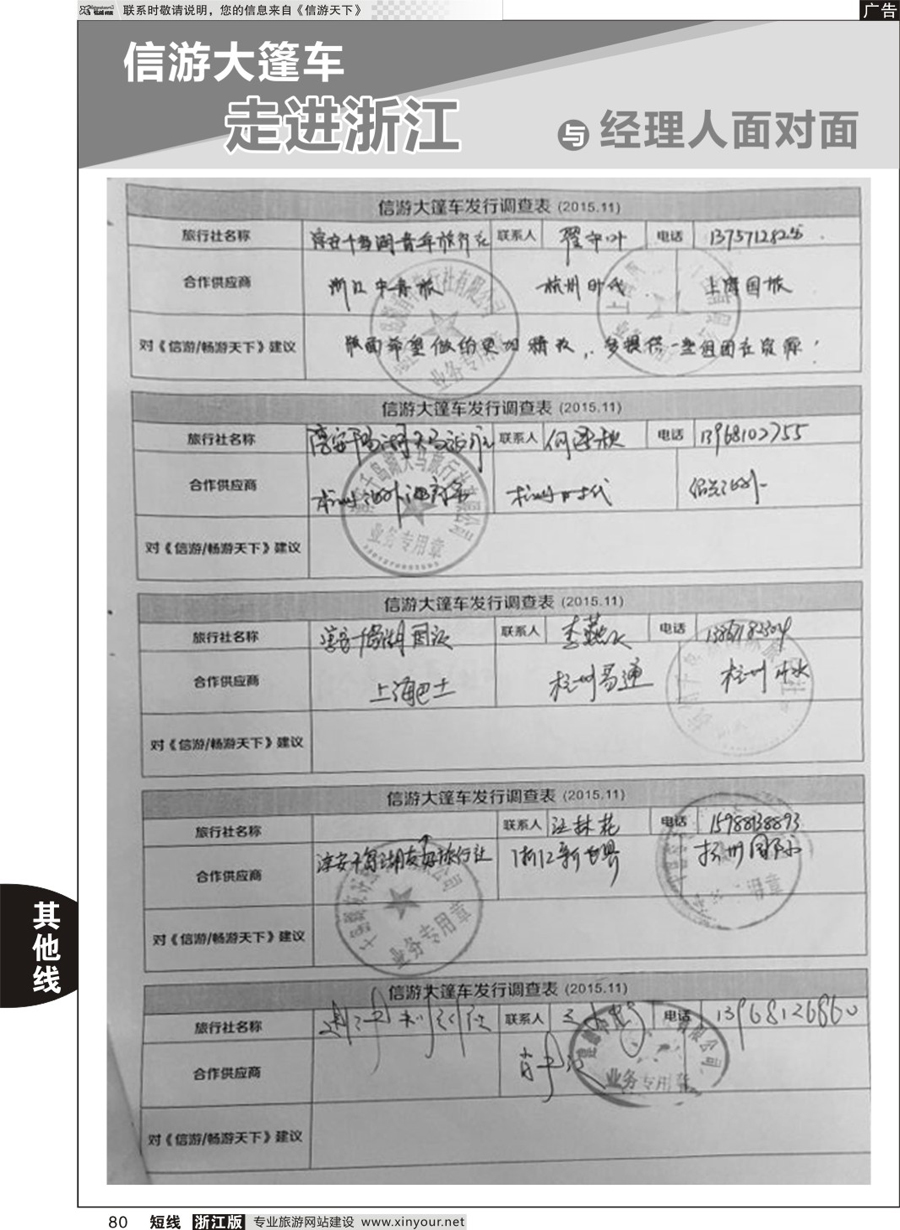 联系时敬请说明，您的信息来自《信游天下》
广告
信游大篷车
走进浙江
与 经理人面对面
信游大篷车发行调查表 (2015.11)
旅行社名称 淳安千岛湖青年旅行社 联系人 电话
合作供应商 浙江中青旅 杭州时代 上海国旅
对《信游/畅游天下》建议 版面希望做的更加精致，多提供一些组团社资源！
业务专用章
信游大篷车发行调查表 (2015.11)
旅行社名称 淳安千岛湖天马旅行社 联系人 电话 13968102755
合作供应商 杭州时代
对《信游/畅游天下》建议
千岛湖天马旅行社有限公司
业务专用章
信游大篷车发行调查表 (2015.11)
旅行社名称 淳安千岛湖国旅 联系人 李燕 电话
合作供应商 上海巴士 杭州易通 杭州
对《信游/畅游天下》建议
信游大篷车发行调查表 (2015.11)
旅行社名称 联系人 汪林花 电话 15988138893
合作供应商 淳安千岛湖友好旅行社 浙江新世界 杭州
对《信游/畅游天下》建议
业务专用章
信游大篷车发行调查表 (2015.11)
旅行社名称 联系人 电话 13968126860
合作供应商
对《信游/畅游天下》建议
业务专用章
其他线
80 短线 浙江版 专业旅游网站建设 www.xinyour.net